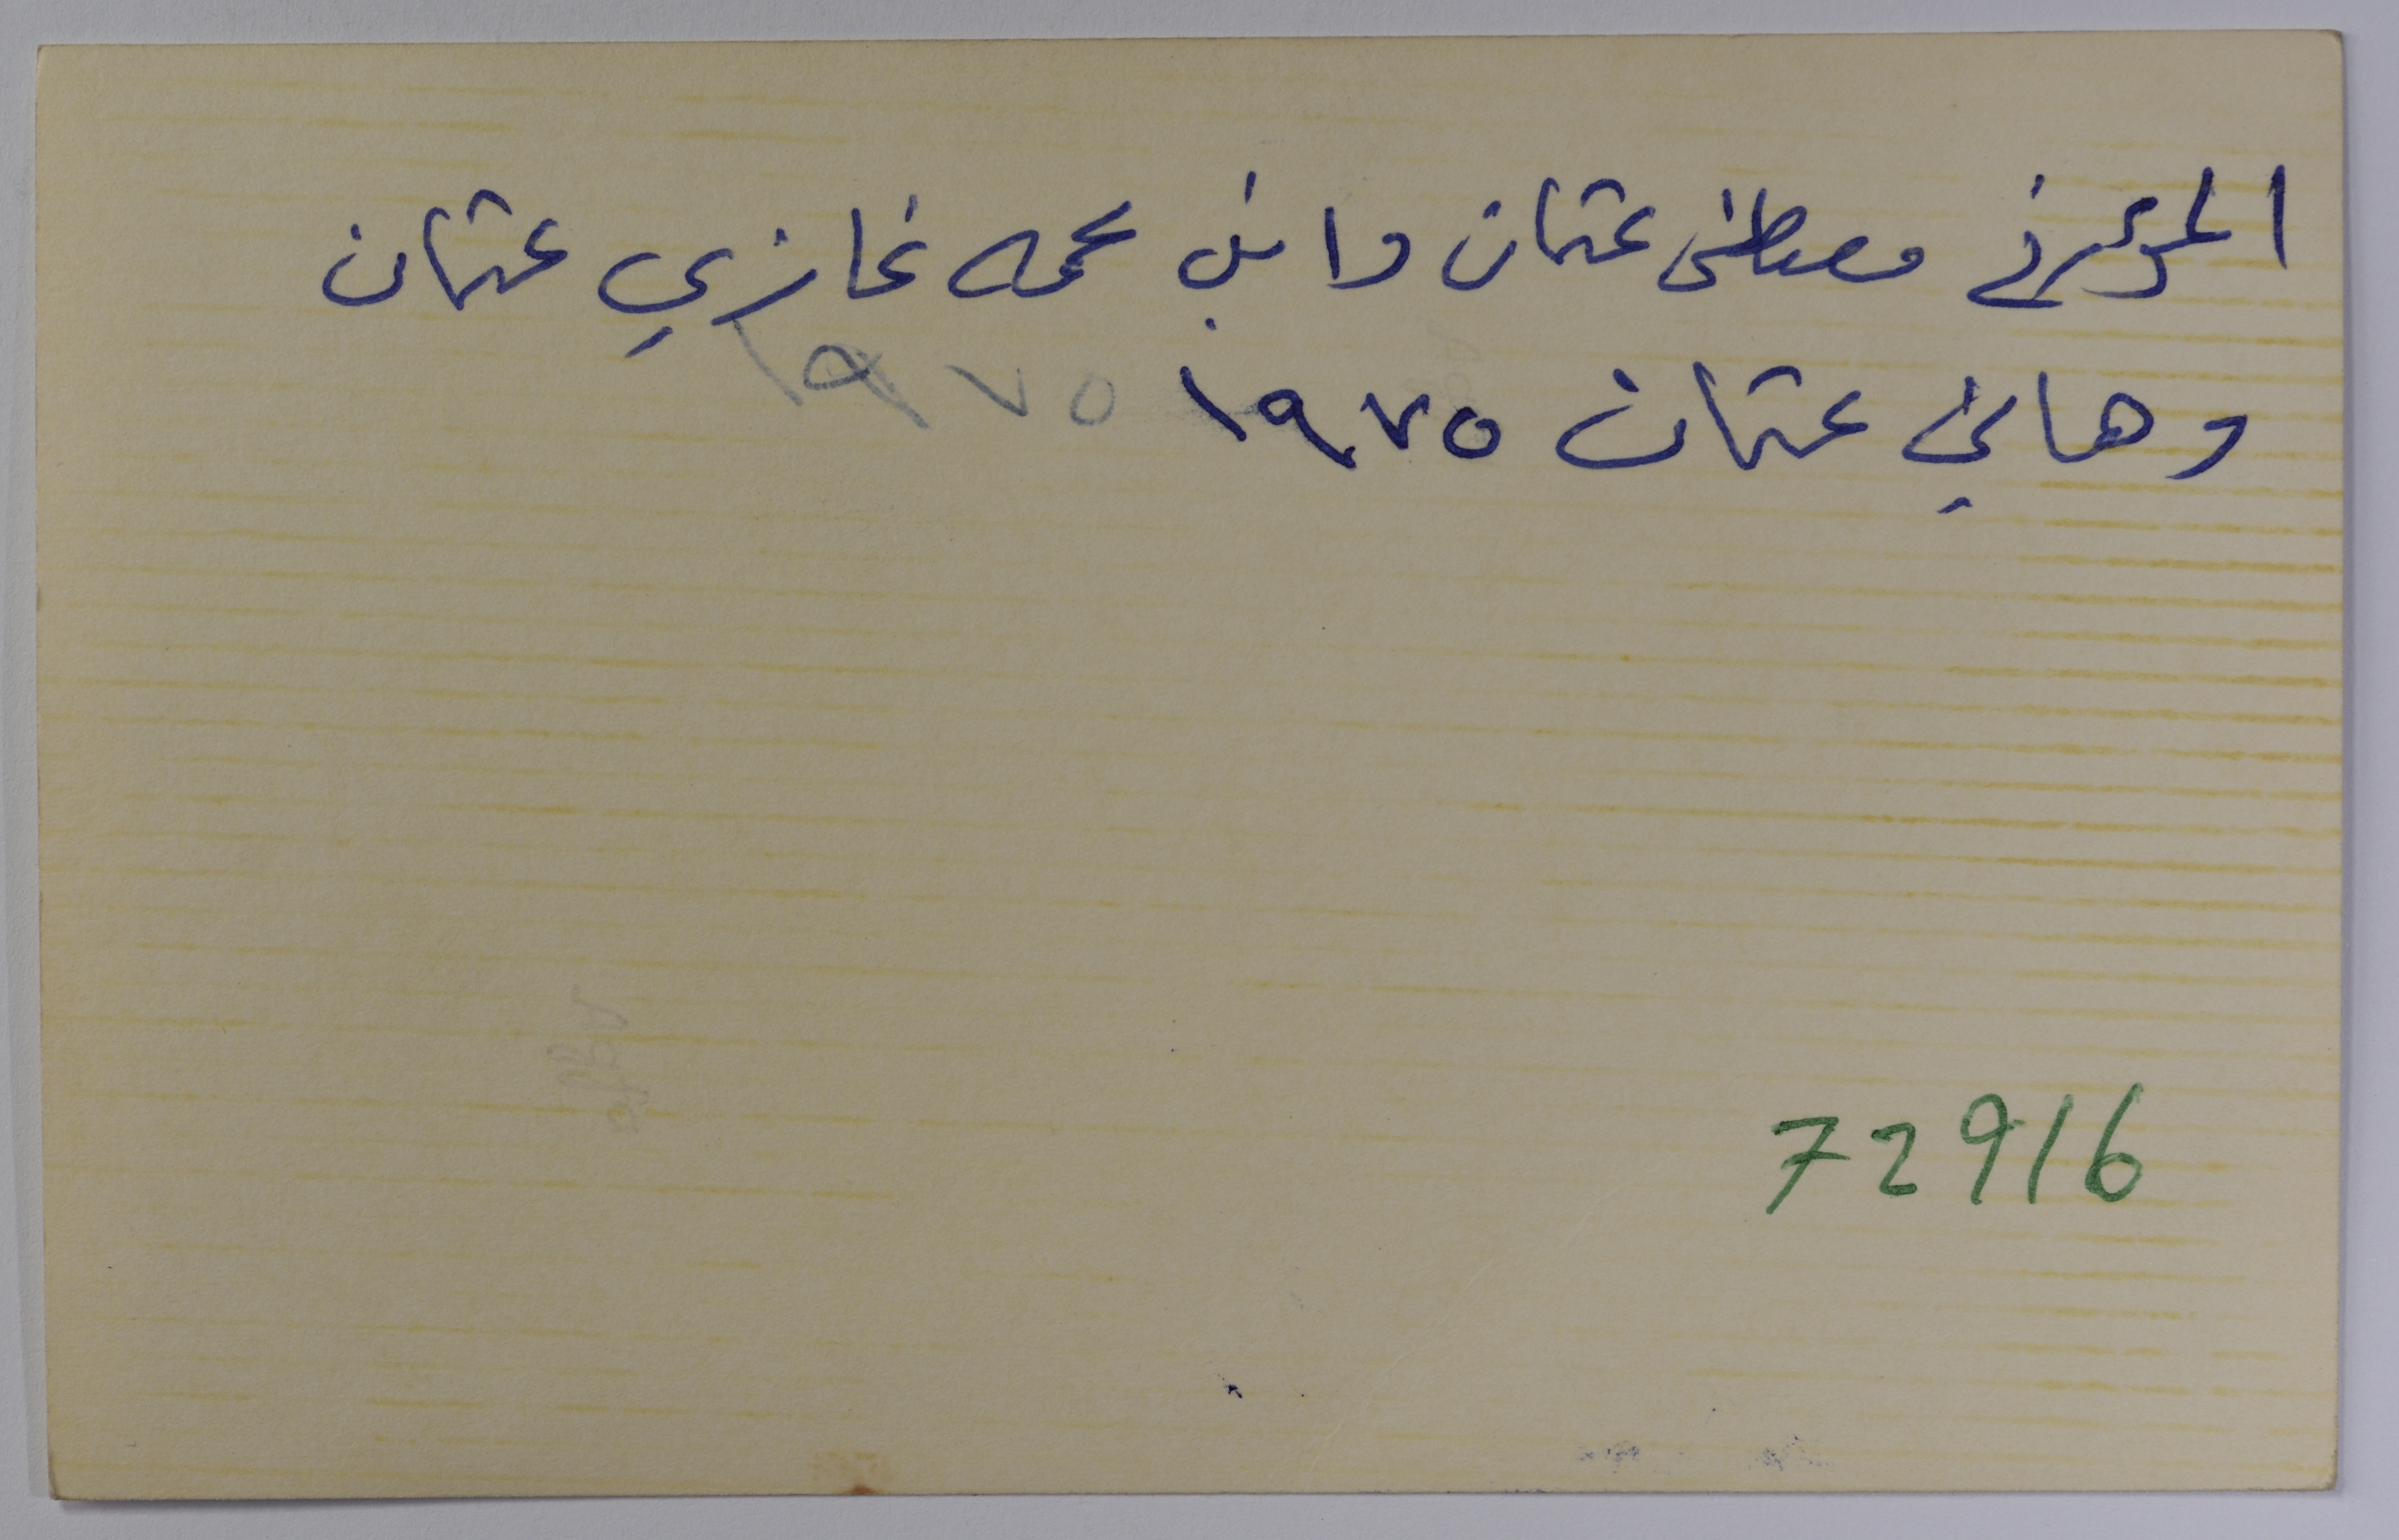 المؤرخ مصطفى عثمان وابن عمه غازي عثمان
وهاني عثمان ١٩٧٥
١٩٧٥
72916